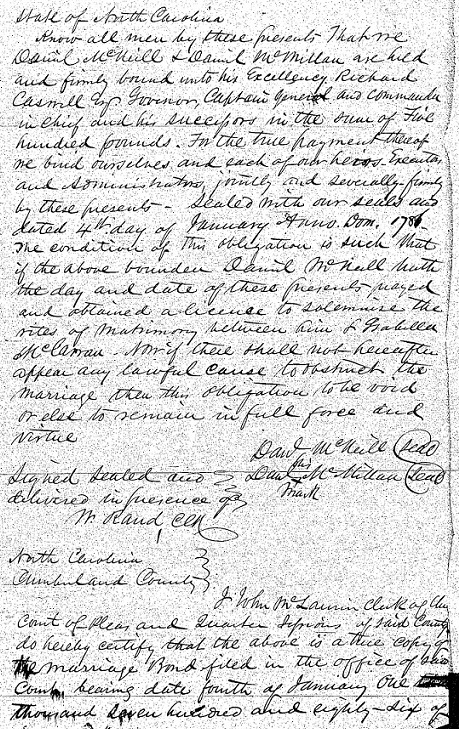 State of North Carolina
Know all men by these presents That we
Daniel McNeill & Daniel McMillan are held
and firmly bound unto his Excellency Richard
Caswell Esqr Govinor, Captain General and commander
in chief and his successors in the sum of Five
hundred pounds. For the true payment thereof
we bind ourselves and each of our heirs, Executors
and Administrators, jointly and severally firmly
by these presents - Sealed with our seals and
dated 4th day of January Anno. Dom. 1786
The condition of this obligation is such that
if the above bounden Daniel McNeill hath
the day and date of these presents prayed
and obtained a licence to solemnise the
rites of Matrimony between him & Isabella
McCarran - Now if there shall not hereafter
appear any lawful cause to obstruct the
marriage then this obligation to be void
or else to remain in full force and
virtue
Danl McNeill (seal)
his
Signed sealed and Danl McMillan (seal)
delivered in presence of mark
W. Rand, Clk
North Carolina
Cumberland County
I John McLaurin Clerk of the
Court of Pleas and Quarter Sessions of said County
do hereby certify that the above is a true copy of
the marriage Bond filed in the office of said
Court, bearing date fourth of January One
thousand seven hundred and eighty-six of